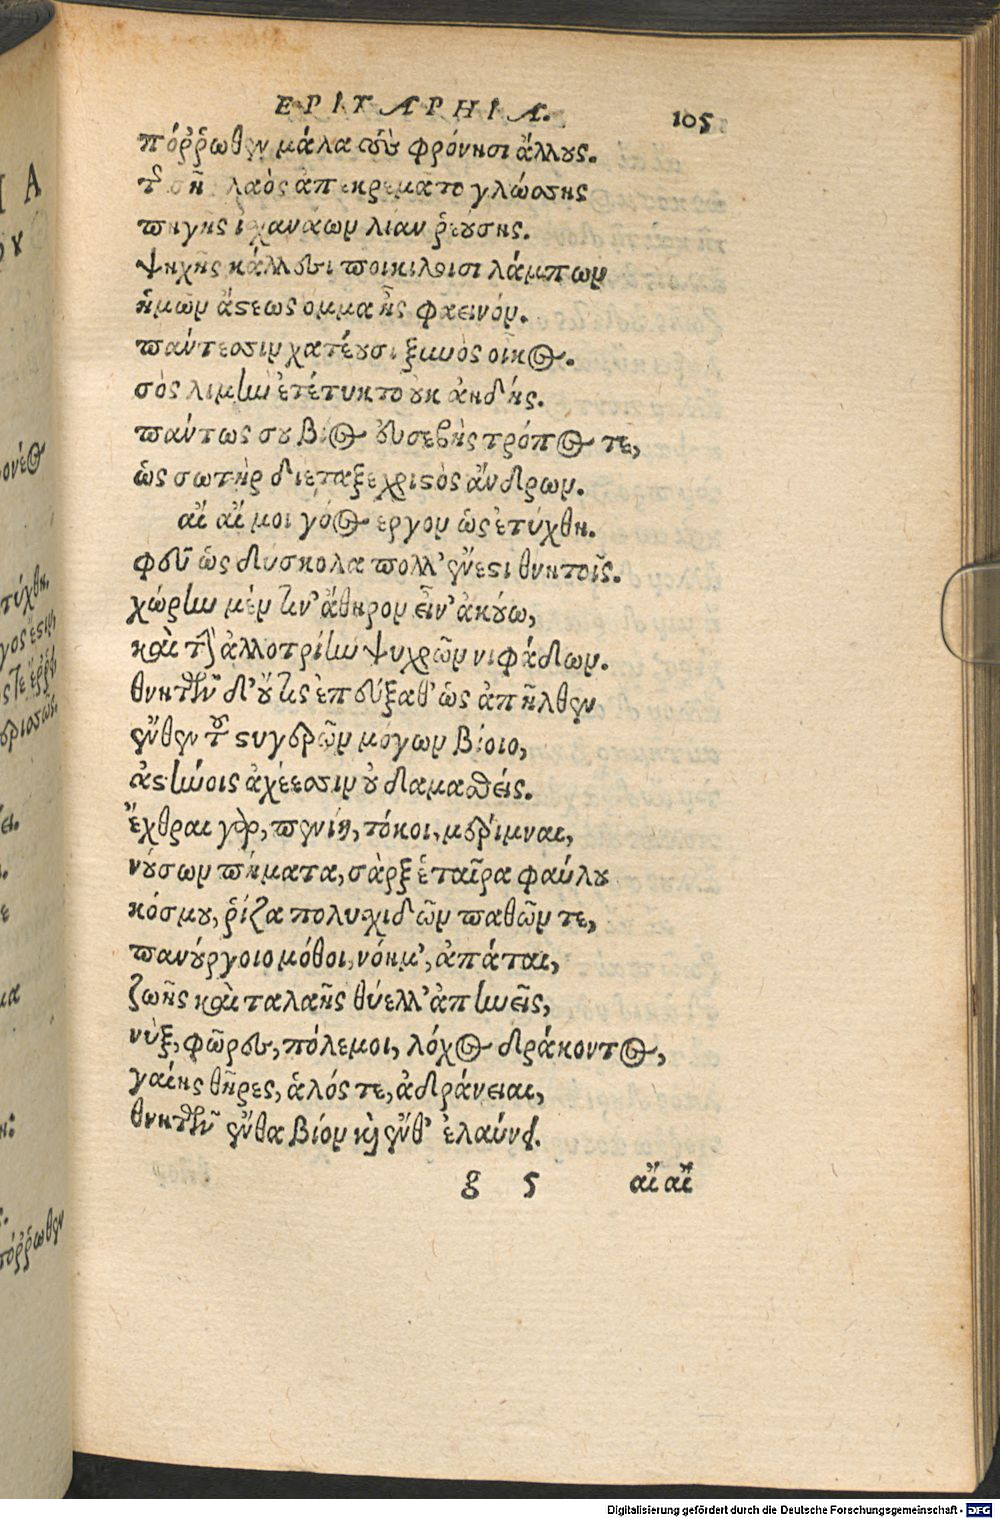 EPITAPHIA. 105
πόῤῥωθεν μάλα σὺ φρόνησι ἄλλους.
τοῦ σῆ λαὸς ἀπεκρεμᾶτο γλώσσης
πηγῆς ἰχανάων λίαν ῥεύσης.
ψηχῆς κάλλει ποικίλοισι λάμπων
ἡμῶν ἄστεως ομμα ἦς φαεινόν.
πάντεσσιν χατέουσι ξυνὸς οἶκος.
σὸς λιμὴν ἐτέτυκτο οὐκ ἀηδής.
πάντως σου βίος εὐσεβὴς τρόπος τε,
ὡς σωτὴρ διεταξε χριστὸς ἄνδρων.
αἴ αἴ μοι γόος εργον ὡς ἐτύχθη.
φεῦ ὡς δύσκολα πολλ' ἔνεστι θνητοῖς.
χώρην μὲν τιν' ἄθηρον εἶν' ἀκούω,
καὶ τὴν ἀλλοτρίην ψυχρῶν νιφάδων.
θνητῶν δ' οὔτις ἐπεύξαθ' ὡς ἀπῆλθεν
ἔνθεν τοῦ στυγερῶν μόγων βίοιο,
ἀστήνοις ἀχέεσσιν οὐ δαμασθείς.
ἔχθραι γὰρ, πενίη, τόκοι, μερίμναι,
νούσων πήματα, σὰρξ ἑταῖρα φαύλου
κόσμου, ῥίζα πολυχιδῶν παθῶν τε,
πανούργοιο μόθοι, νόημ', ἀπάται,
ζωῆς καὶ ταλαῆς θύελλ' ἀπηνεῖς,
νὺξ, φῶρες, πόλεμοι, λόχος δράκοντος,
γαίης θῆρες, ἁλός τε, ἀδράνειαι,
θνητῶν ἔνθα βίον καὶ ἔνθ' ἐλαύνει.
g 5 αἴ αἴ
Digitalisierung gefördert durch die Deutsche Forschungsgemeinschaft - DFG